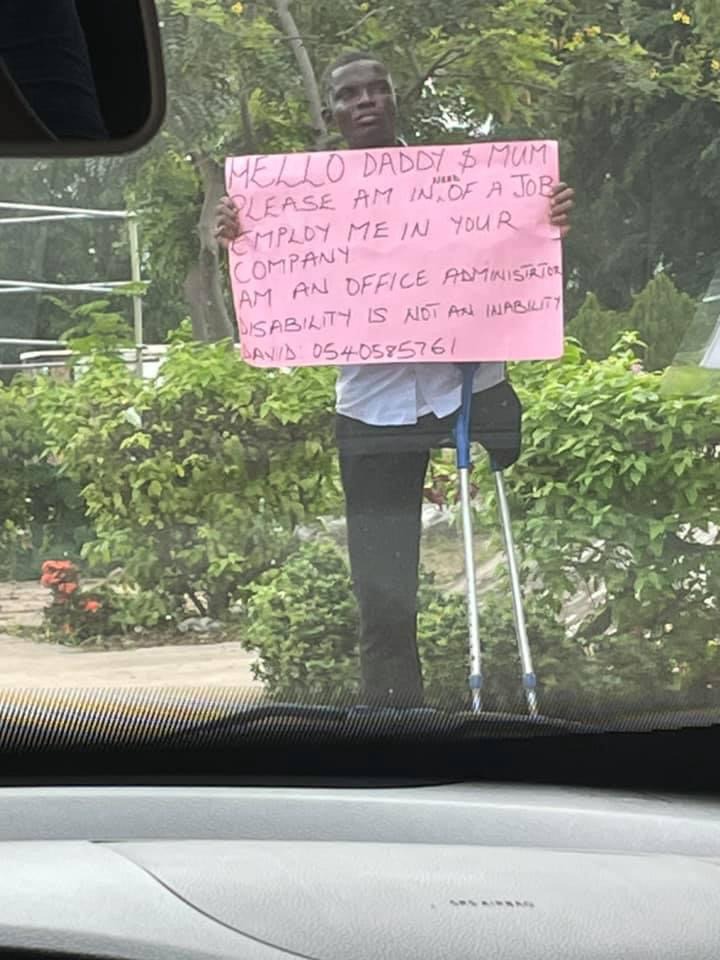 HELLO DADDY $ MUM
PLEASE AM IN NEED OF A JOB
EMPLOY ME IN YOUR
COMPANY
AM AN OFFICE ADMINISTRTOR
DISABILITY IS NOT AN INABILITY
DAVID: 0540585761
SRS AIRBAG